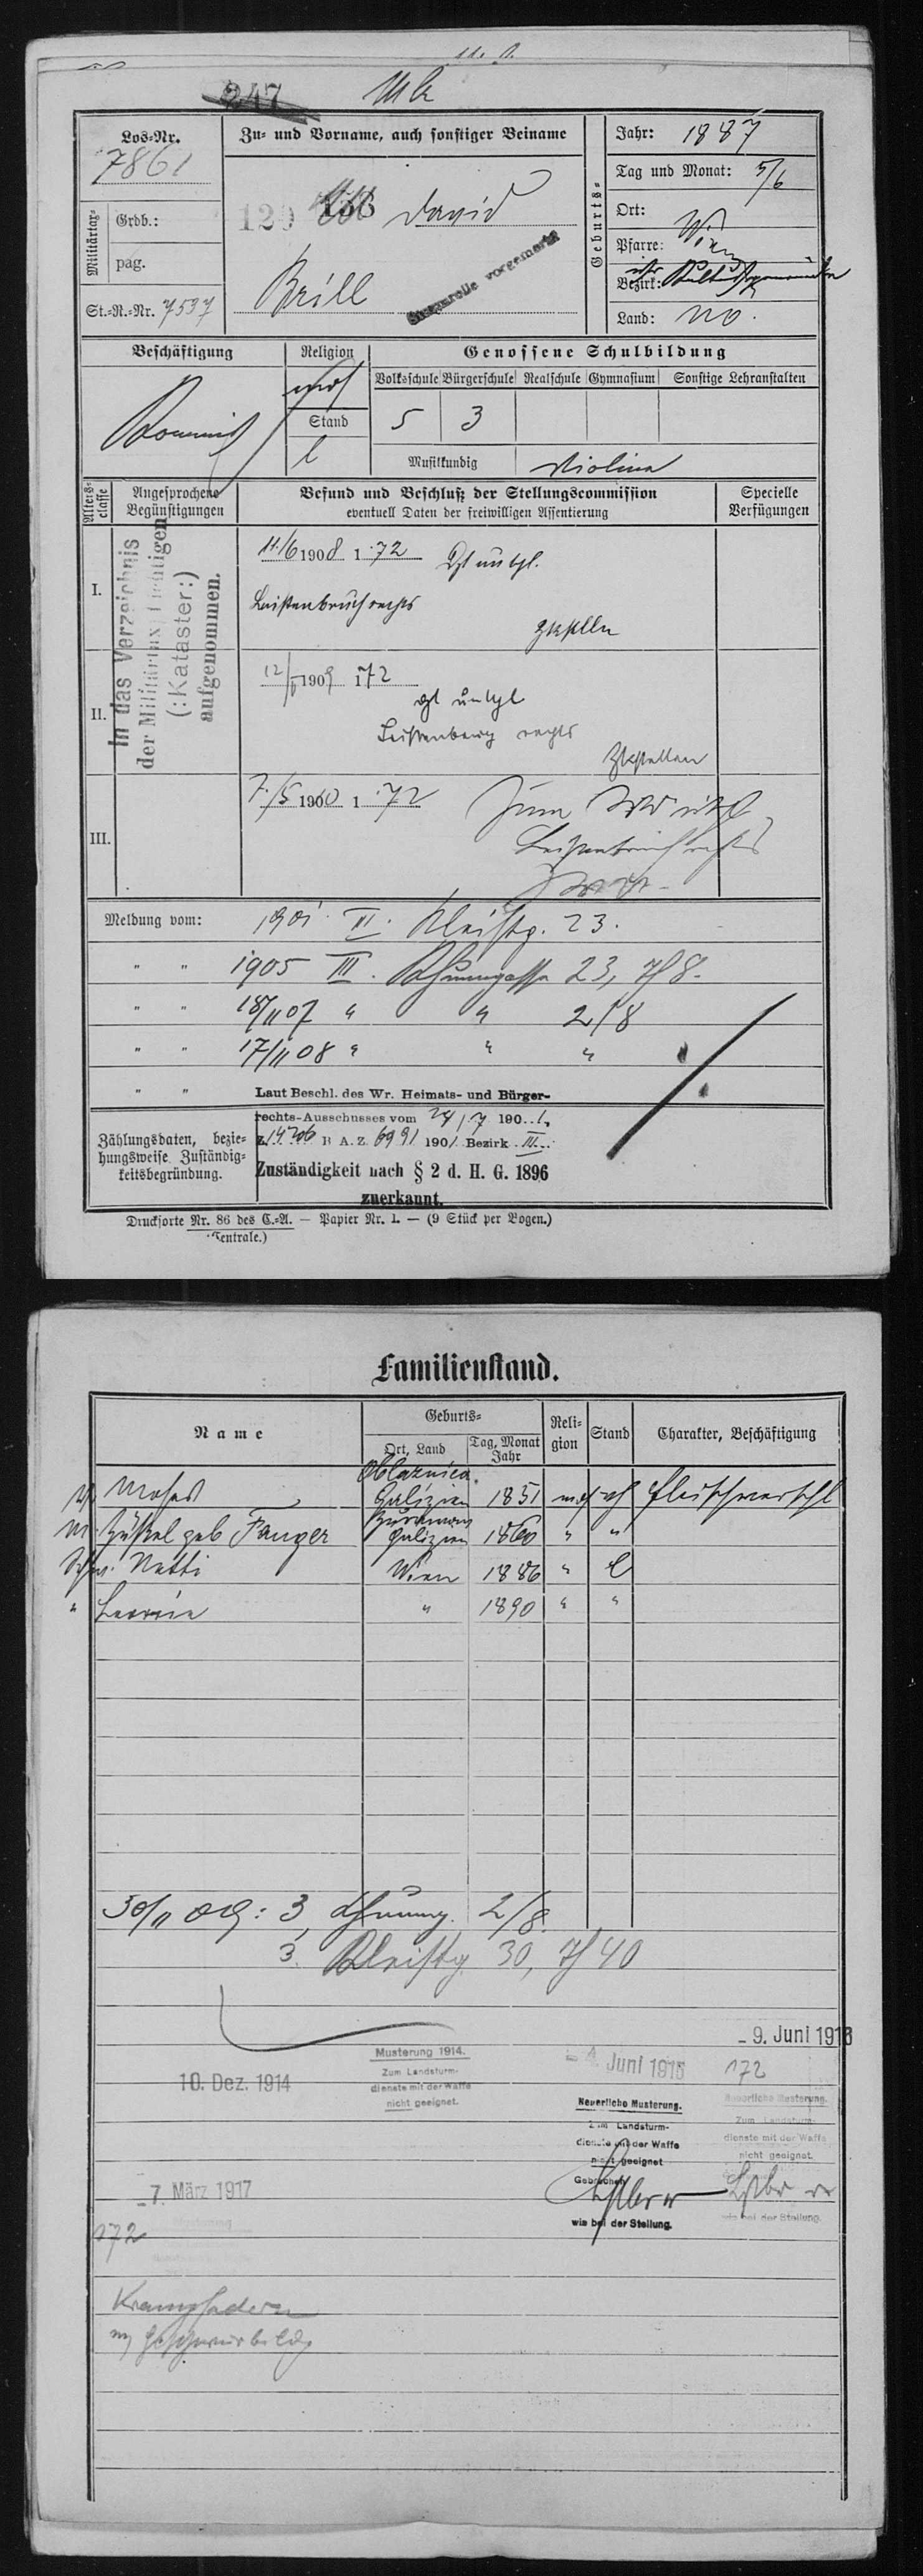 247
Los=Nr.
7861
Zu= und Vorname, auch sonstiger Beiname
Geburts=
Jahr: 1887
Tag und Monat: 5/6
Ort: Wien
Pfarre:
Bezirk: isr. Kultusgemeinde
Land: NÖ.
Militärtax=
Grdb.:
pag.
St.=R.=Nr. 7537
129 133 David
Brill
Stammrolle vorgemerkt
Beschäftigung
Kommis
Religion
mos
Stand
l
Genossene Schulbildung
Volksschule Bürgerschule Realschule Gymnasium Sonstige Lehranstalten
5 3
Musikkundig Violine
Alters=classe
Angesprochene Begünstigungen
Befund und Beschluß der Stellungscommission
eventuell Daten der freiwilligen Assentierung
Specielle Verfügungen
In das Verzeichnis
der Militärtaxpflichtigen
(:Kataster:)
aufgenommen.
I.
11./6 1908 1.72 Dzt untgl.
Leistenbruch rechts
Zkstellen
II.
12/5 1909 172
dzt untgl
rechts
Zkstellen
III.
7./5 1910 1.72 Zum
Leistenbruch rechts
Meldung vom: 1901 III. Kleistg. 23.
" " 1905 III. 23, 7/8.
" " 18/11 07 " " 2/8
" " 17/11 08 " " "
" " Laut Beschl. des Wr. Heimats- und Bürger-
rechts-Ausschusses vom 24/7 1901.
Z. 14706 B A. Z. 6991 1901 Bezirk III.
Zuständigkeit nach § 2 d. H. G. 1896
zuerkannt.
Zählungsdaten, bezie=
hungsweise Zuständig=
keitsbegründung.
Drucksorte Nr. 86 des C.=A. — Papier Nr. 1. — (9 Stück per Bogen.)
(Zentrale.)
Familienstand.
Name
Geburts=
Ort, Land
Tag, Monat
Jahr
Reli=
gion
Stand
Charakter, Beschäftigung
V. Moses Oblaznica Galizien 1851 mos vh
M. geb Fanger Galizien 1860 " "
Schw. Netti Wien 1886 " l
" " 1890 " "
30/11 09: 3, 2/8.
3. Kleistg 30, 7/40
- 9. Juni 1916
10. Dez. 1914
Musterung 1914.
Zum Landsturm-
dienste mit der Waffe
nicht geeignet.
- 4. Juni 1915
172
Neuerliche Musterung.
Zum Landsturm-
dienste mit der Waffe
nicht geeignet
Gebrechen
wie bei der Stellung.
Neuerliche Musterung.
Zum Landsturm-
dienste mit der Waffe
nicht geeignet.
wie bei der Stellung.
- 7. März 1917
172
Krampfadern